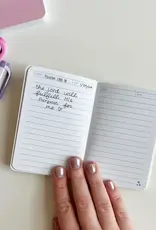 Psalm 138:8
the lord will
fulfill his
purpose for
me